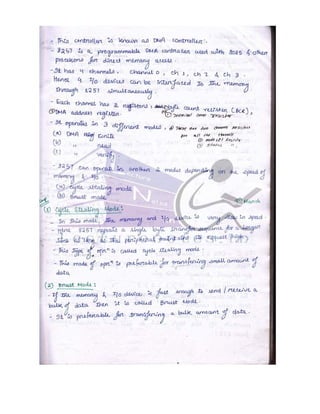 - This controller is known as DMA controller.
- 8257 is a programmable DMA controller used with 8085 & other
processors for direct memory access.
- It has 4 channels. Channel 0, ch 1, ch 2 & ch 3.
Hence 4 I/o devices can be interfaced to the memory
through 8257 simultaneously.
- Each channel has 2 registers: count register (BCR),
DMA address register.
- It operates in 3 different modes:
(A) DMA write
(B) " read
(C) " verify
- 8257 can operate in another 2 modes depending on the speed of
memory & I/o -
(A) cycle stealing mode
(B) Burst mode
(1) Cycle Stealing Mode:
- In this mode, the memory and I/o device is very slow in speed
- Hence 8257 repeats a single byte transfer sequence for a longer
time as long as the peripheral maintains its request
- This type of oprn is called cycle stealing mode.
- This mode of oprn is preferable for transferring small amount of
data.
(2) Burst Mode:
- If the memory & I/o device is fast enough to send / receive a
bulk of data then it is called Brust Mode.
- It is preferable for transferring a bulk amount of data.